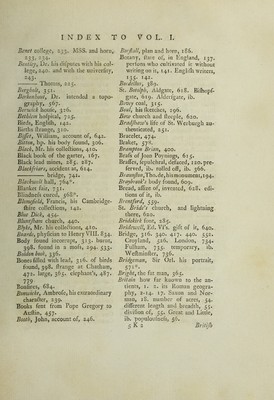 INDEX TO VOL. I.
Benet college, 233. MSS. and horn,
233, 234.
Bentley, Dr. his disputes with his col-
lege, 240. and with the university,
245.
——— Thomas, 225.
Berghsted, 351.
Berkenhout, Dr. intended a topo-
graphy, 567.
Berwick house, 316.
Bethlem hospital, 725.
Birds, English, 140.
Births strange, 310.
Bisset, William, account of, 642.
Bitton, bp. his body found, 306.
Black, Mr. his collections, 410.
Black book of the garter, 187.
Black lead mines, 283. 287.
Blackfriars, accident at, 614.
——— bridge, 742.
Blackwell hall, 764*.
Blanket fair, 731.
Blisworth cured, 368*.
Blomefield, Francis, his Cambridge-
shire collections, 142.
Blue Dick, 454.
Bluntsham church, 440.
Blyke, Mr. his collections, 410.
Boards, physician to Henry VIII. 834.
Body found interrupt, 313. burnt,
398. found in a moss, 294. 533.
Boidon boat, 336.
Bones filled with lead, 316. of birds
found, 598. strange at Chatham,
472. large, 365. elephant's, 487.
779
Bonfires, 684.
Bonwicke, Ambrose, his extraordinary
character, 239.
Books sent from Pope Gregory to
Austin, 457.
Booth, John, account of, 246.
Borstall, plan and horn, 186.
Botany, state of, in England, 137.
persons who cultivated it without
writing on it, 141. English writers,
133. 142.
Bordeshes, 389.
St. Botolph, Aldgate, 618. Bishops-
gate, 619. Aldersgate, ib.
Bovey coal, 315.
Boul, his sketches, 296.
Bow church and steeple, 620.
Bradshaw's life of St. Werburgh au-
thenticated, 251.
Bracelet, 474.
Brakes, 57*.
Brampton Brian, 400.
Brass of Joan Poynings, 615.
Brasses, sepulchral, defaced, 120. pre-
served, ib. rolled off, ib. 366.
Braynton, Tho. de, his monument, 194.
Braybrook's body found, 609.
Bread, assise of, invented, 628. edi-
tions of it, ib.
Brentford, 539.
St. Bride's church, and lightning
there, 620.
Bridekirk font, 285.
Bridewell, Ed. VI's. gift of it, 640.
Bridge, 316. 340. 417. 440. 531.
Croyland, 526. London, 734.
Fulham, 735. temporary, ib.
Westminster, 736.
Bridgeman, Sir Orl. his portrait,
571*.
Bright, the fat man, 365.
Britain how far known to the an-
cients, 1. 2. its Roman geogra-
phy, 2-14. 17. Saxon and Nor-
man, 18. number of acres, 34.
different length and breadth, 53.
division of, 55. Great and Little,
ib. populousness, 56.
5 K 2
British